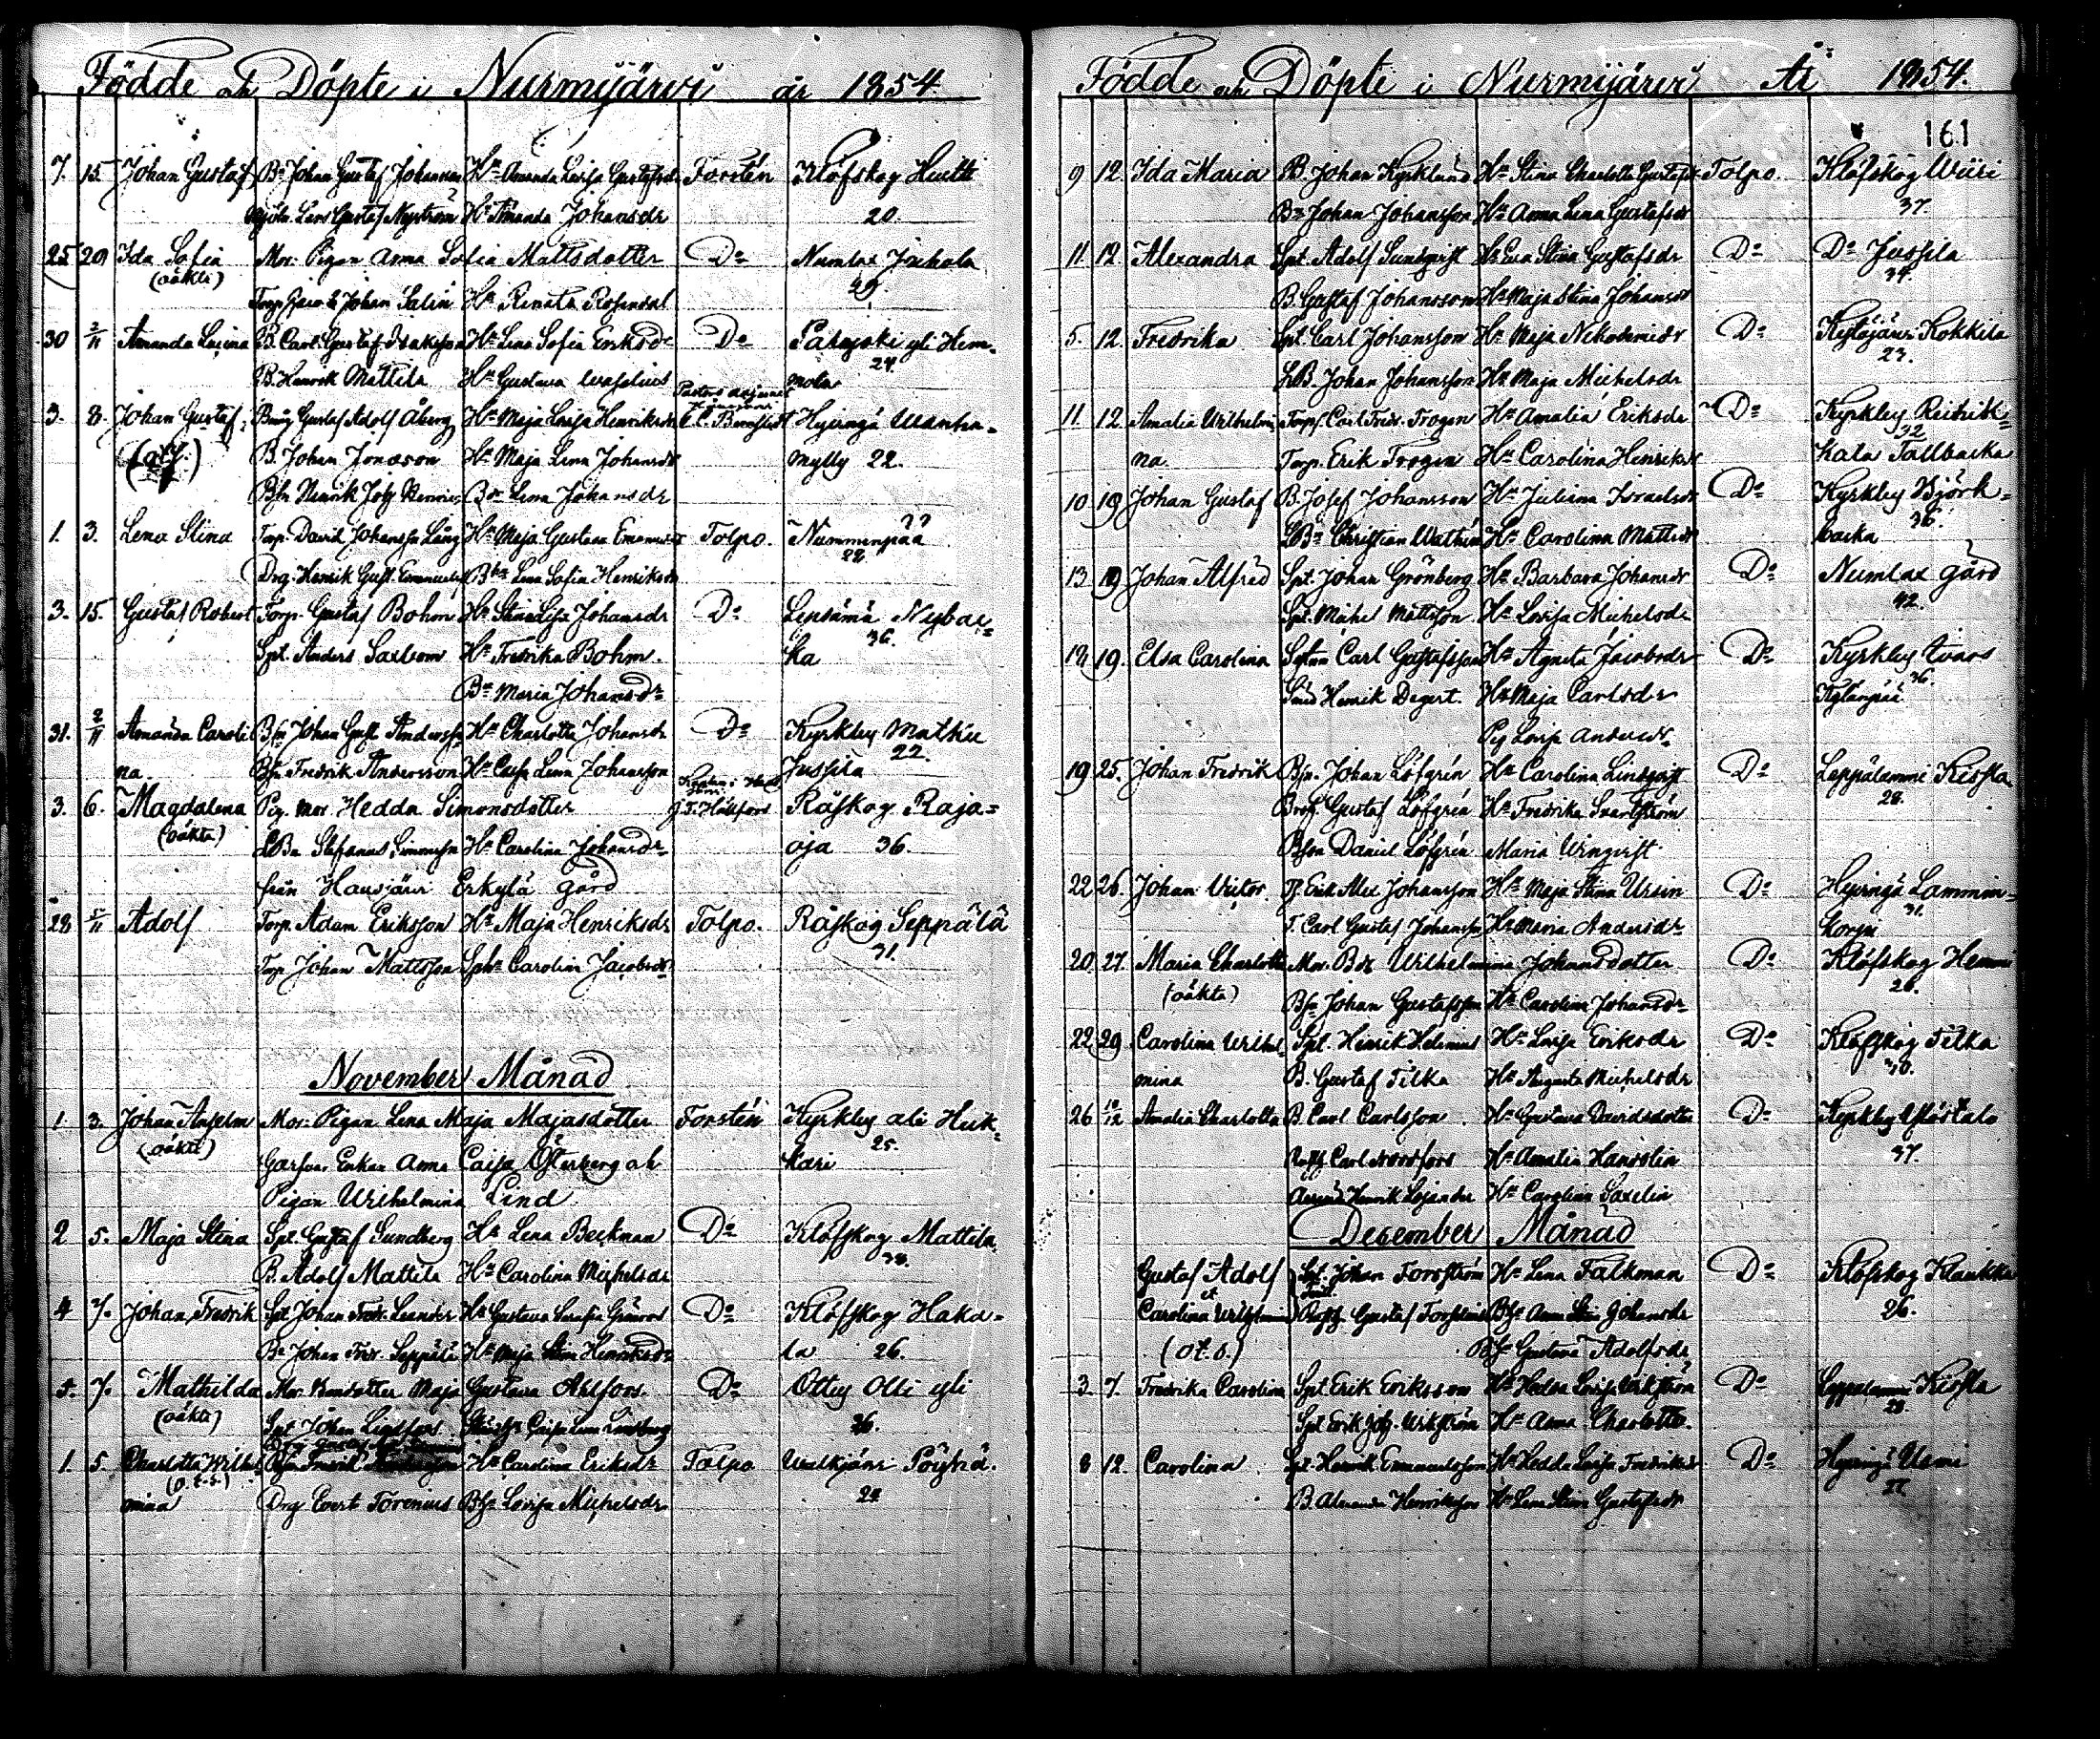 Födde och Döpte i Nurmijärvi år 1854
7. 15. Johan Gustaf Bn Johan Gustaf Johansson Hu Amanda Lovisa Gustafsdr Forstén Klöfskog Huitti
Lars Gustaf Nyström Hu Amanda Johansdr 20.
25 29 Ida Sofia Mor. Pigan Anna Sofia Mattsdotter Do Numlax Juhola
(oäkta) 40.
Johan Salin Hu Renata Rosendal
30 2/11 Amanda Lovina B. Carl Gustaf Isaksson Hu Lena Sofia Eriksdr Do Palojoki yli Hem-
B. Henrik Mattila Hu Gustava 24. mola
Pastors adjunct
3. 8. Johan Gustaf Gustaf Adolf Åberg Hu Maja Lovisa Henriksdr Hyvingä Wanha-
B. Johan Jonason Hu Maja Lena Johansdr mylly 22.
Bsn Henrik Joh. Henrics. Bdr Lena Johansdr
1. 3. Lena Stina Torp. David Johansson Lång Hu Maja Gustava Emanuelsdr Tolpo. Numminpää
Drg. Henrik Gust. Emanuelss. Lena Sofia Henriksdr 22.
3. 15. Gustaf Robert Torp. Gustaf Bohm Hu Stina Lisa Johansdr Do Lepsämä Nybac-
Spt. Anders Saxbom Hu Fredrika Bohm. 36. ka
Bdr Maria Johansdr
31. 2/11 Amanda Caroli- Bsn Johan Gust. Andersson Hu Charlotta Johansdr Do Kyrkby Matku
na. Bsn Fredrik Andersson Hu Caisa Lena Johansson Jussila 22.
3. 6. Magdalena Pig. mor Hedda Simonsdotter J.F. Röjskog Raja-
(oäkta) LBn Stefanus Simonsson Hu Carolina Johansdr oja 36.
från Hausjärvi Erkylä gård
28 5/11 Adolf Torp. Adam Eriksson Hu Maja Henriksdr Tolpo. Röjskog Seppälä
Torp. Johan Mattsson Carolina Jacobsdr 31.
November Månad
1. 3. Johan Anselm Mor. Pigan Lena Maja Majasdotter Forstén Kyrkby ali Huk-
(oäkta) Enkan Anna Caisa Österberg och 25. kari
Pigan Wilhelmina Lind
2 5. Maja Stina Spt. Gustaf Sundberg Hu Lena Beckman Do Klöfskog Mattila
B. Adolf Mattila Hu Carolina Michelsdr 38.
4 7. Johan Fredrik Spt Johan Fredr. Leander Hu Gustava Serafia Grönroos Do Klöfskog Haka-
Bn Johan Fredr. Seppälä Hu Maja Stina Henriksdr la 26.
5. 7. Mathilda Mor. Maja Gustava Ahlfors. Do Ottby Olli yli
(oäkta) Spt Johan Lindfors Caisa Lena Lindberg 36.
1. 5. Charlotta Wilhel- Bsn Fredrik Hu Carolina Eriksdr Tolpo Uudkjärvi Pöyhä.
(o.t.s.) mina Drg Evert Forenius Lovisa Michelsdr 24
Födde och Döpte i Nurmijärvi År 1854.
161
9 12. Ida Maria B. Johan Kyrklund Hu Stina Charlotta Gustafsdr Tolpo. Klöfskog Wiiri
Bn Johan Johansson Hu Anna Lena Gustafsdr 37.
11 12 Alexandra Spt. Adolf Sundqvist Hu Eva Stina Gustafsdr Do Do Jussila
B. Gustaf Johansson Hu Maja Stina Johansdr 34.
5. 12. Fredrika Spt. Carl Johansson Hu Maja Nikodemidr Do Kytäjärvi Kokkila
LB. Johan Johansson Hu Maja Michelsdr 23.
11. 12 Amalia Wilhelmi- Torp. Carl Fredr. Frogen Hu Amalia Eriksdr Do Kyrkby
na. Torp. Erik Frogen Hu Carolina Henriksdr 32 Tallbacka
10 19 Johan Gustaf B. Josef Johansson Hu Juliana Israelsdr Do Kyrkby Björk-
LBn Christian Wathén Hu Carolina Mattsdr 36. backa
13 19 Johan Alfred Spt. Johan Grönberg Hu Barbara Johansdr Do Numlax gård
Spt. Michel Mattsson Hu Lovisa Michelsdr 42.
12 19. Elsa Carolina Carl Gustafsson Hu Agneta Jacobsdr Do Kyrkby Uvars
Smed Henrik Degert. Hu Maja Carlsdr 36. Kylänpää
Pig Lovisa Andersdr
19 25. Johan Fredrik Bsn. Johan Löfgrén Hu Carolina Lindqvist Do Leppälammi Kissla
Gustaf Löfgrén Hu Fredrika Svartström 28.
Bson Daniel Löfgrén Maria Wingvist
22 26. Johan Victor Tp. Erik Alex Johansson Hu Maja Stina Ursin Do Hyvingä Lammin-
T. Carl Gustaf Johansson Hu Maria Andersdr 31. korpi
20 27. Maria Charlotta Mor. Bdr Wilhelmina Johansdotter Do Klöfskog Hemmi
(oäkta) Bsn Johan Gustafsson Hu Carolina Johansdr 26.
22 29 Carolina Wilhel- Spt. Henrik Helenius Hu Lovisa Eriksdr Do Klöfskog Tilka
mina B. Gustaf Tilka Hu Augusta Michelsdr 30.
26 10/12 Amalia Charlotta B. Carl Carlsson Hu Gustava Davidsdotter Do Kyrkby Ylöstalo
Carl Nordfors Hu Amalia Handolin 37.
Henrik Lojander Hu Carolina Saxelin
December Månad
Gustaf Adolf Spt. Johan Forsström Hu Lena Falkman Do Klöfskog Klaukka
et Carolina Wilhelmina Gustaf Anna Stina Johansdr 26.
(o.t.s.) Gustava Adolfsdr
3 7. Fredrika Carolina Spt Erik Eriksson Hu Hedda Lovisa Wikström Do Leppälammi Kissla
Spt Erik Joh. Wikström Hu Anna Charlotta 28.
8 12. Carolina Spt. Henrik Emanuelsson Hu Hedda Lovisa Fredriksdr Do Hyvingä Usmi
B. Alexander Henriksson Hu Lena Stina Gustafsdr